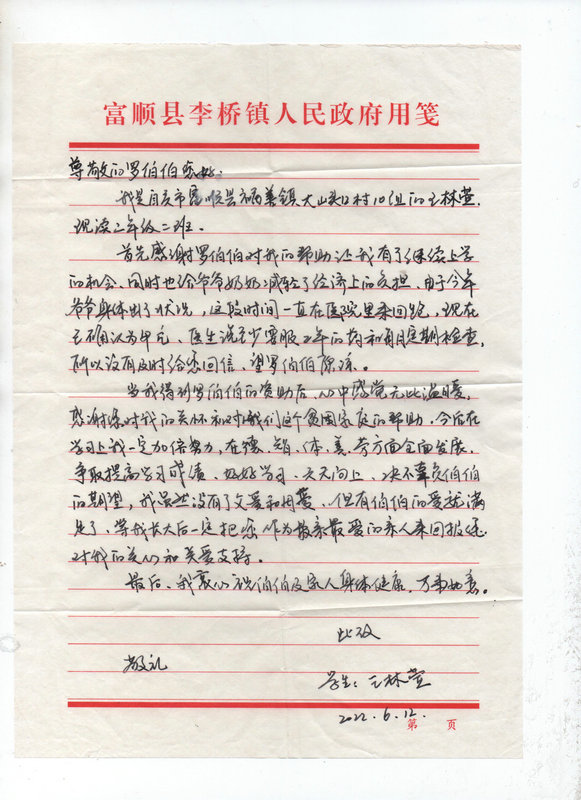 富顺县李桥镇人民政府用笺
尊敬的罗伯伯您好:
我是自贡市富顺县福善镇大山铺村10组的王林萱,
现读二年级二班。
首先感谢罗伯伯对我的帮助让我有了继续上学
的机会、同时也给爷爷奶奶减轻了经济上的负担、由于今年
爷爷身体出了状况,这段时间一直在医院里来回跑,现在
已确认为甲亢、医生说至少要服2年的药和每月定期检查,
所以没有及时给您回信、望罗伯伯原谅。
当我得到罗伯伯的资助后、心中感觉无比温暖,
感谢您对我的关怀和对我们这个贫困家庭的帮助、今后在
学习上我一定加倍努力,在德、智、体、美、劳方面全面发展、
争取提高学习成绩、好好学习、天天向上、决不辜负伯伯
的期望,我虽然没有了父爱和母爱、但有伯伯的爱就满
足了、等我长大后一定把您作为最亲最爱的亲人来回报您
对我的关心和关爱支持。
最后、我衷心祝伯伯及家人身体健康,万事如意。
此致
敬礼
学生:王林萱
2022.6.12.
第 页